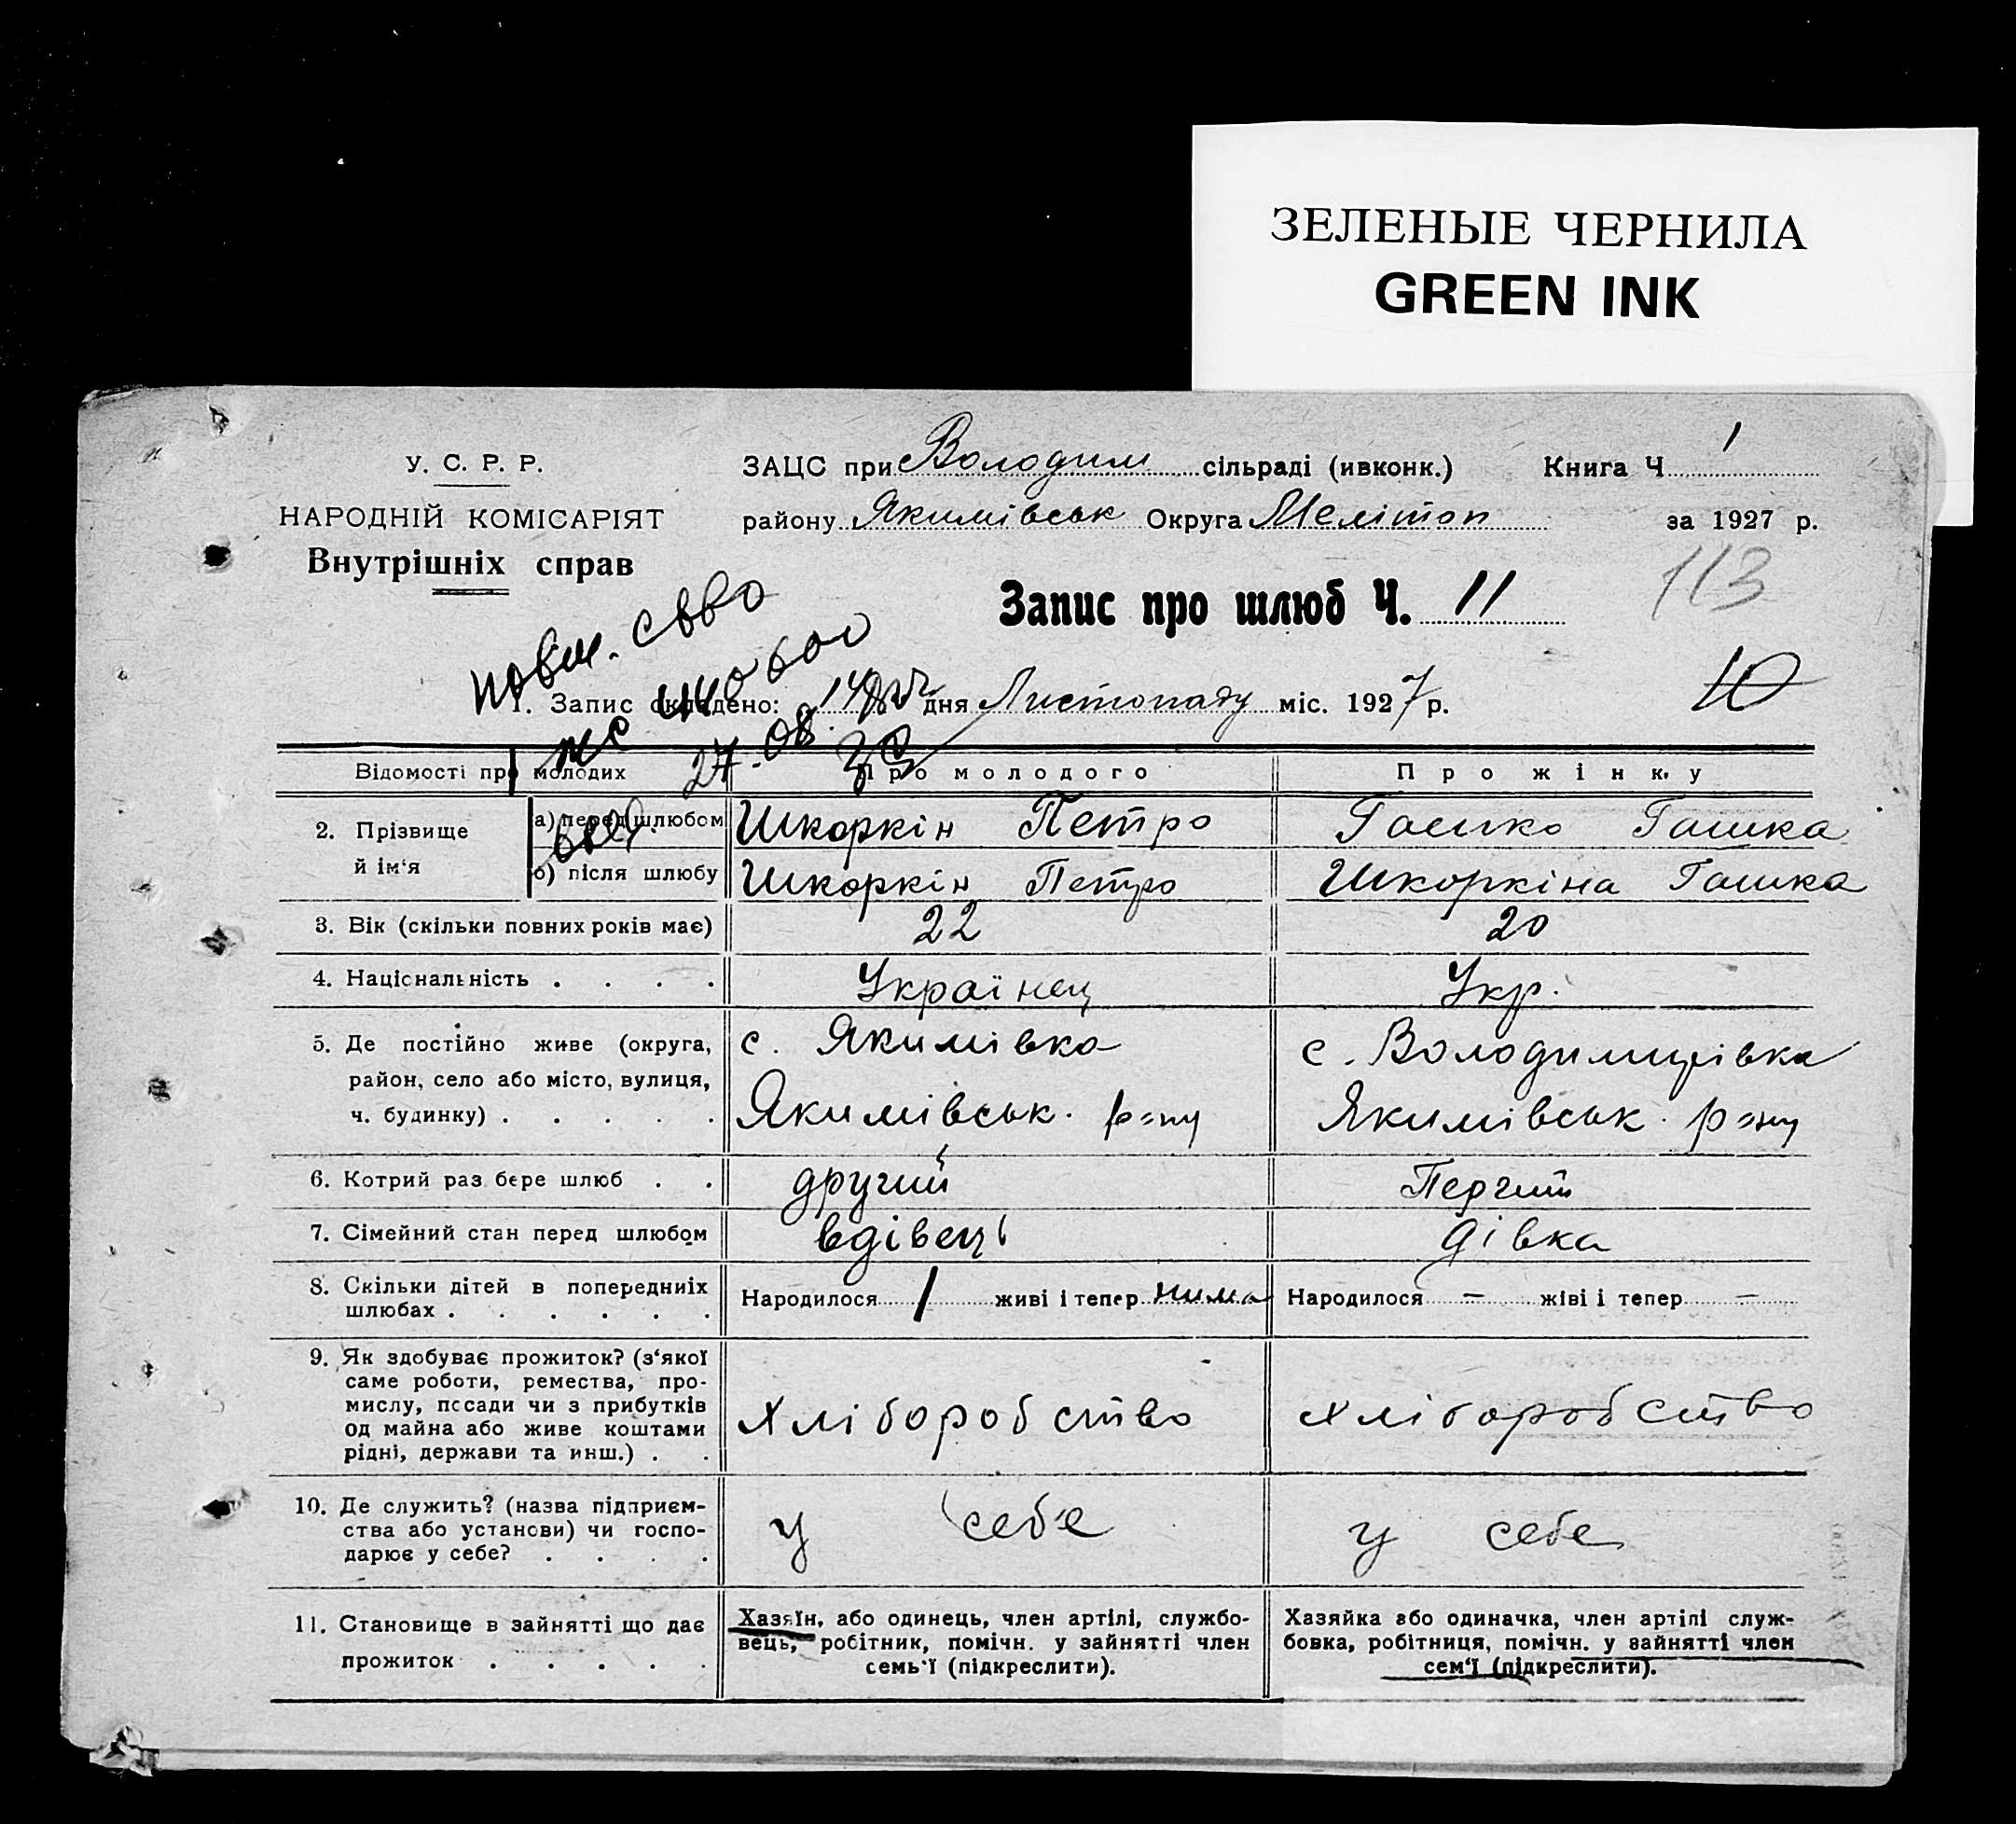 ЗЕЛЕНЫЕ ЧЕРНИЛА
GREEN INK
У. С. Р. Р.
НАРОДНІЙ КОМІСАРІЯТ
Внутрішніх справ
ЗАЦС при Володим сільраді (ивконк.) Книга Ч 1
району Якимівськ Округа Мелітоп за 1927 р.
Запис про шлюб Ч. 11
113
10
повт. свво
27.08.
1. Запис складено: 14 дня Листопаду міс. 1927 р.
Відомості про молодих Про молодого Про жінку
2. Прізвище й ім‘я
а) перед шлюбом Шкоркін Петро Гасико Гашка
б) після шлюбу Шкоркін Петро Шкоркіна Гашка
3. Вік (скільки повних років має) 22 20
4. Національність . . . . Українец Укр.
5. Де постійно живе (округа, район, село або місто, вулиця, ч. будинку) . . . . .
с. Якимівка
Якимівськ. р=ну
с. Володимирівка
Якимівськ. р=ну
6. Котрий раз бере шлюб . . другий Перший
7. Сімейний стан перед шлюбом вдівець дівка
8. Скільки дітей в попередниіх шлюбах . . . . . .
Народилося 1 живі і тепер нима
Народилося – жіві і тепер –
9. Як здобуває прожиток? (з‘якої
саме роботи, ремества, про-
мислу, посади чи з прибутків
од майна або живе коштами
рідні, держави та инш.) . .
хліборобство хліборобство
10. Де служить? (назва підприєм-
ства або установи) чи госпо-
дарює у себе? . . . .
у себе у себе
11. Становище в зайнятті що дає
прожиток . . . . .
Хазяїн, або одинець, член артілі, службо-
вець, робітник, помічн. у зайнятті член
семь‘ї (підкреслити).
Хазяйка або одиначка, член артілі служ-
бовка, робітниця, помічн. у зайнятті член
сем‘ї (підкреслити).